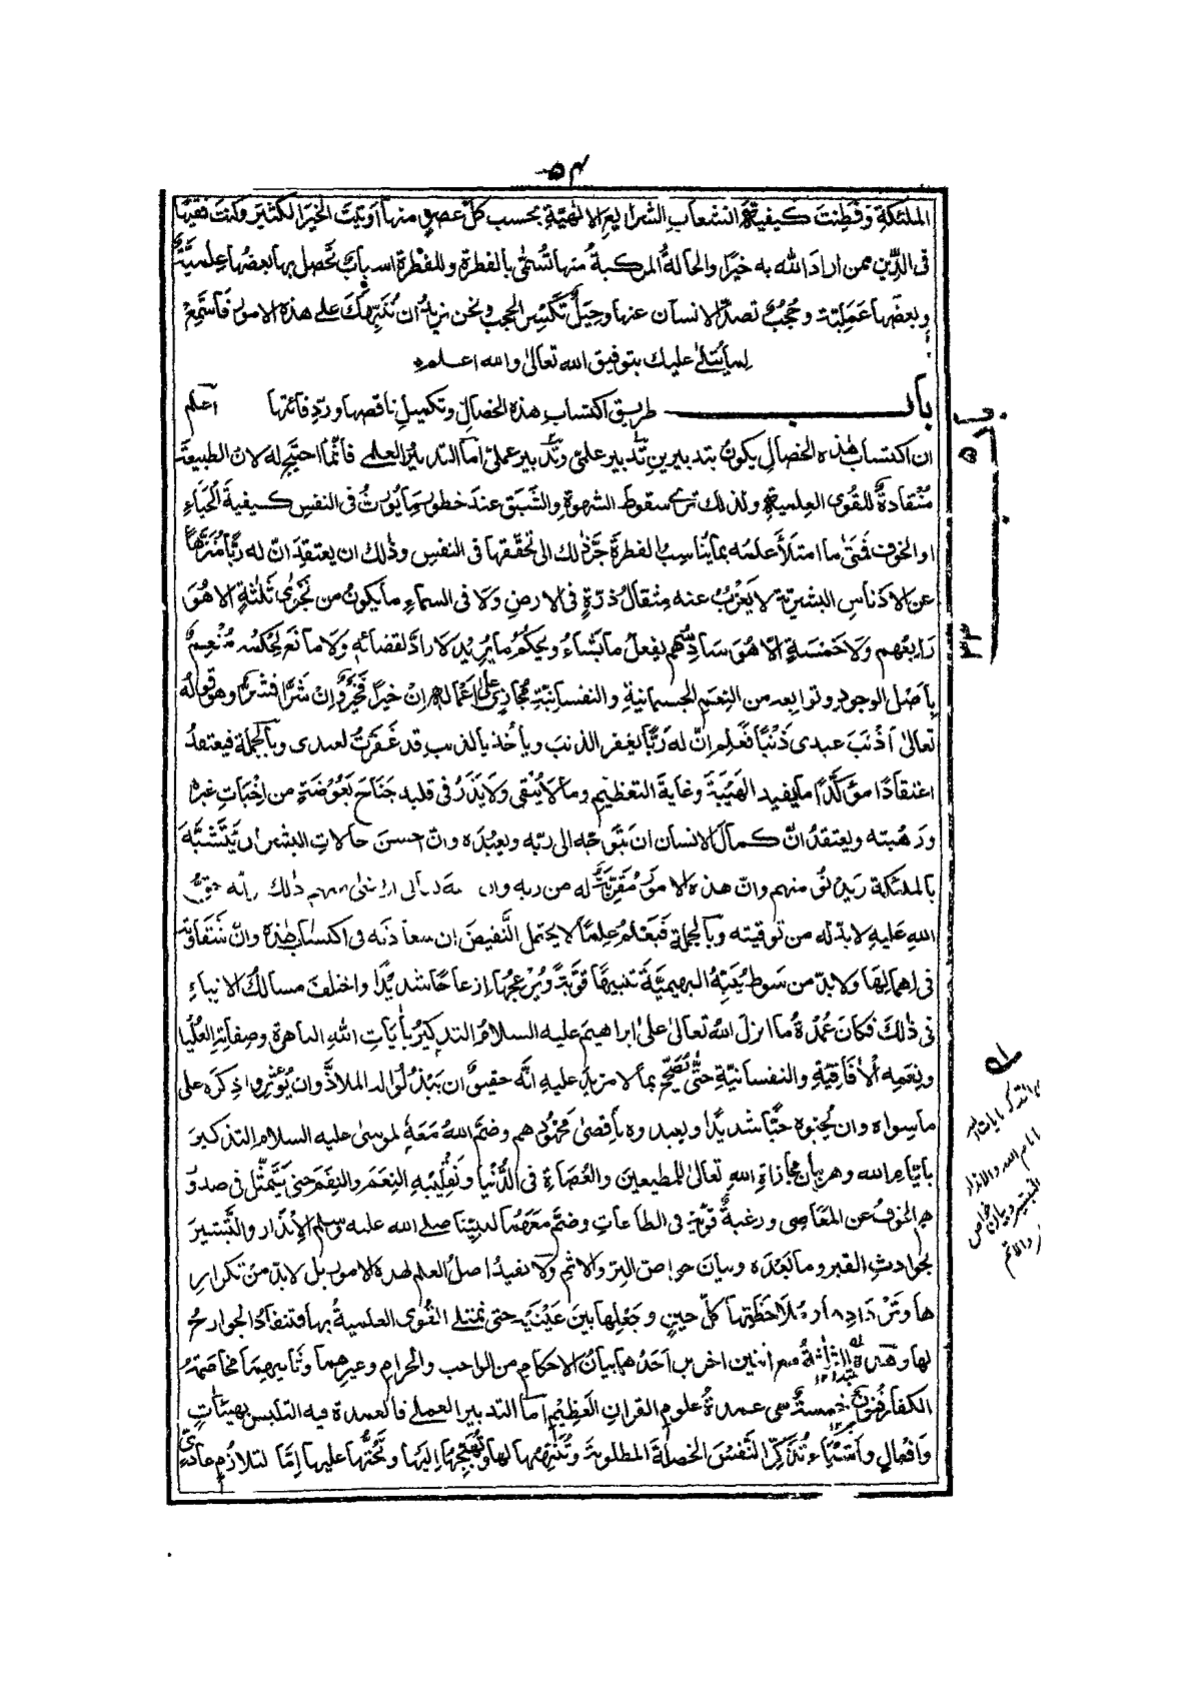 ٥٤
الملئكة وفطنت كيفية انشعاب الشرايع الالهية بحسب كل عصر منها اوتيت الخير الكثير وكنت فقيها
فى الدين ممن اراد الله به خيرا والحالة المركبة منها تسمى بالفطرة وللفطرة اسباب تحصل بها بعضها علمية
وبعضها عملية وحجب تصد الانسان عنها وحيل تكسر الحجب ونحن نريد ان ننبهك على هذه الامور فاستمع
لما يتلى عليك بتوفيق الله تعالى والله اعلم
باب طريق اكتساب هذه الخصال وتكميل ناقصها ورد فائتها اعلم
ان اكتساب هذه الخصال يكون بتدبيرين تدبير علمى وتدبير عملى اما التدبير العلمى فانما احتيج له لان الطبيعة
منقادة للقوى العلمية ولذلك ترى سقوط الشهوة والشبق عند خطور ما يورث فى النفس كيفية الحياء
او الخوف فمتى ما امتلأ علمه بما يناسب الفطرة جر ذلك الى تحققها فى النفس وذلك ان يعتقد ان له ربا منزها
عن الادناس البشرية لا يعزب عنه مثقال ذرة فى الارض ولا فى السماء ما يكون من نجوى ثلثة الا هو
رابعهم ولا خمسة الا هو سادسهم يفعل ما يشاء ويحكم ما يريد لا راد لقضائه ولا مانع لحكمه منعم
باصل الوجود وتوابعه من النعم الجسمانية والنفسانية مجازى على اعماله ان خيرا فخير وان شرا فشر وهو قوله
تعالى اذنب عبدى ذنبا فعلم ان له ربا يغفر الذنب وياخذ بالذنب قد غفرت لعبدى وبالجملة فيعتقد
اعتقادا مؤكدا ما يفيد الهيبة وغاية التعظيم وما لا يبقى ولا يذر فى قلبه جناح بعوضة من اخبات غيره
ورهبته ويعتقد ان كمال الانسان ان يتوجه الى ربه ويعبده وان احسن حالات البشر ان يتشبه
بالملئكة ويدنو منهم وان هذه الامور مقربة له من ربه وان الله تعالى ارتضى منهم ذلك وانه حق
الله عليه لا بد له من توفيته وبالجملة فيعلم علما لا يحتمل النقيض ان سعادته فى اكتساب هذه وان شقاوته
فى اهمالها ولا بد من سوط ينبه البهيمية تنبيها قويا ويزعجها ازعاجا شديدا واختلف مسالك الانبياء
فى ذلك فكان عمدة ما انزل الله تعالى على ابراهيم عليه السلام التذكير بايات الله الباهرة وصفاته العليا
ونعمه الافاقية والنفسانية حتى يصحح بما لا مزيد عليه انه حقيق ان يبذلوا له الملاذ وان يؤثروا ذكره على
ما سواه وان يحبوه حبا شديدا ويعبدوه باقصى مجهودهم وضم الله معه لموسى عليه السلام التذكير
بايام الله وهو بيان مجازاة الله تعالى للمطيعين والعصاة فى الدنيا وتقليبه النعم والنقم حتى يتمثل فى صدور
هم الخوف عن المعاصى ورغبة قوية فى الطاعات وضم معهما لنبينا صلى الله عليه وسلم الانذار والتبشير
بحوادث القبر وما بعده وبيان خواص البر والاثم ولا يفيد اصل العلم بهذه الامور بل لا بد من تكرار
ها وترداد ها وملاحظتها كل حين وجعلها بين عينيه حتى تمتلى القوى العلمية بها فتنقاد الجوارح
لها وهذه الثلثة مع اثنين اخرين احدهما بيان الاحكام من الواجب والحرام وغيرهما وثانيهما مخاصمة
الكفار فنون خمسة هى عمدة علوم القران العظيم اما التدبير العملى فالعمدة فيه التلبس بهيئات
وافعال واشياء تذكر النفس الخصلة المطلوبة وتنبهها لها وتهيجها اليها وتحثها عليها اما لتلازم عادى